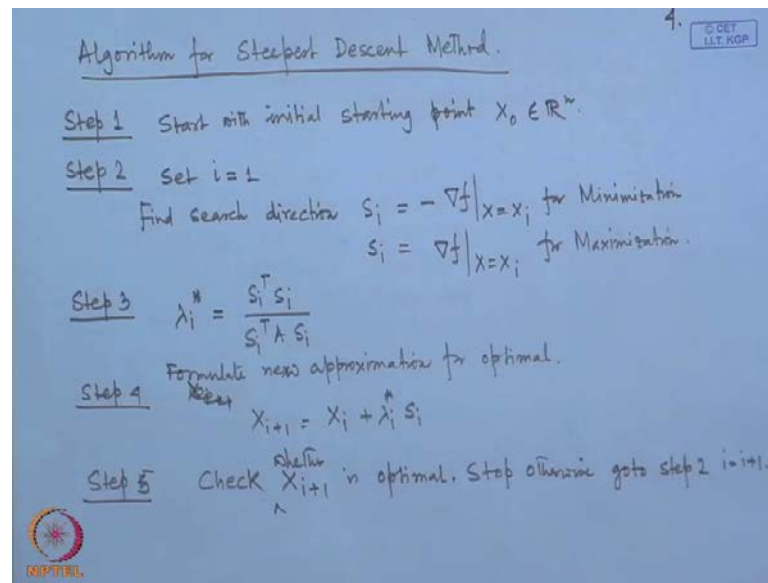 4.
© CET
I.I.T. KGP
Algorithm for Steepest Descent Method.
Step 1 Start with initial starting point X₀ ∈ ℝⁿ.
Step 2 Set i = 1
Find search direction Sᵢ = - ∇f|ₓ₌ₓᵢ for Minimization
Sᵢ = ∇f|ₓ₌ₓᵢ for Maximization.
Step 3 λᵢ* = Sᵢᵀ Sᵢ / Sᵢᵀ A Sᵢ
Formulate new approximation for optimal.
Step 4 Xᵢ₊₁ = Xᵢ + λᵢ* Sᵢ
Step 5 Check whether Xᵢ₊₁ is optimal. Stop otherwise goto step 2 i=i+1.
NPTEL